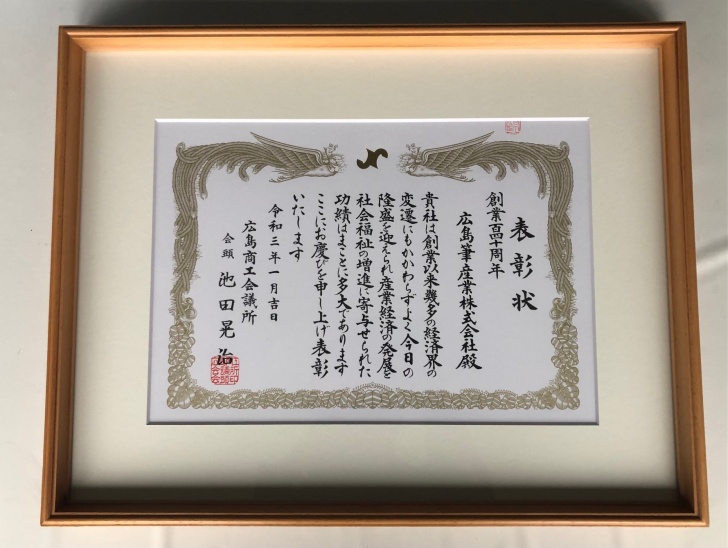 表彰状
創業百四十周年
広島筆産業株式会社殿
貴社は創業以来幾多の経済界の
変遷にもかかわらずよく今日の
隆盛を迎えられ産業経済の発展と
社会福祉の増進に寄与せられた
功績はまことに多大であります
ここにお慶びを申し上げ表彰
いたします
令和三年一月吉日
広島商工会議所
会頭 池田晃治